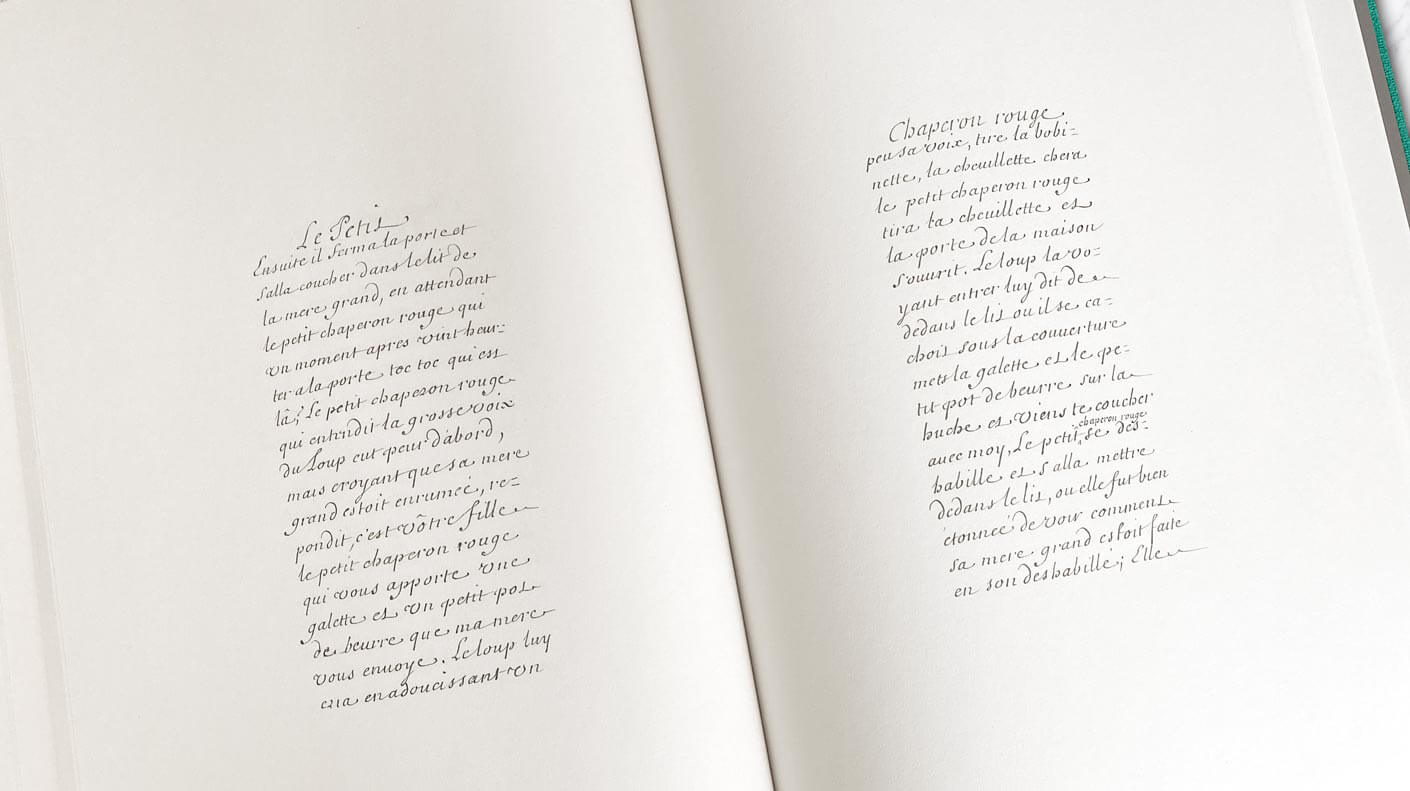 Le Petit
Ensuite il ferma la porte et
salla coucher dans le lit de
la mere grand, en attendant
le petit chaperon rouge qui
un moment apres vint heur=
ter a la porte toc toc qui est
là? Le petit chaperon rouge
qui entendit la grosse voix
du Loup eut peur d'abord,
mais croyant que sa mere
grand estoit enrumée, re=
pondit, c'est vôtre fille
le petit chaperon rouge
qui vous apporte une
galette et un petit pot
de beurre que ma mere
vous enuoye. Le loup luy
cria en adoucissant un
Chaperon rouge
peu sa voix, tire la bobi=
nette, la cheuillette chera
le petit chaperon rouge
tira la cheuillette et
la porte de la maison
s'ouurit. Le loup la vo=
yant entrer luy dit de
dedans le lit ou il se ca=
choit sous la couuerture
mets la galette et le pe=
tit pot de beurre sur la
huche et viens te coucher
auec moy, Le petit chaperon rouge se des=
habille et s alla mettre
dedans le lit, ou elle fut bien
étonneé de voir comment
sa mere grand estoit faite
en son deshabillé; Elle